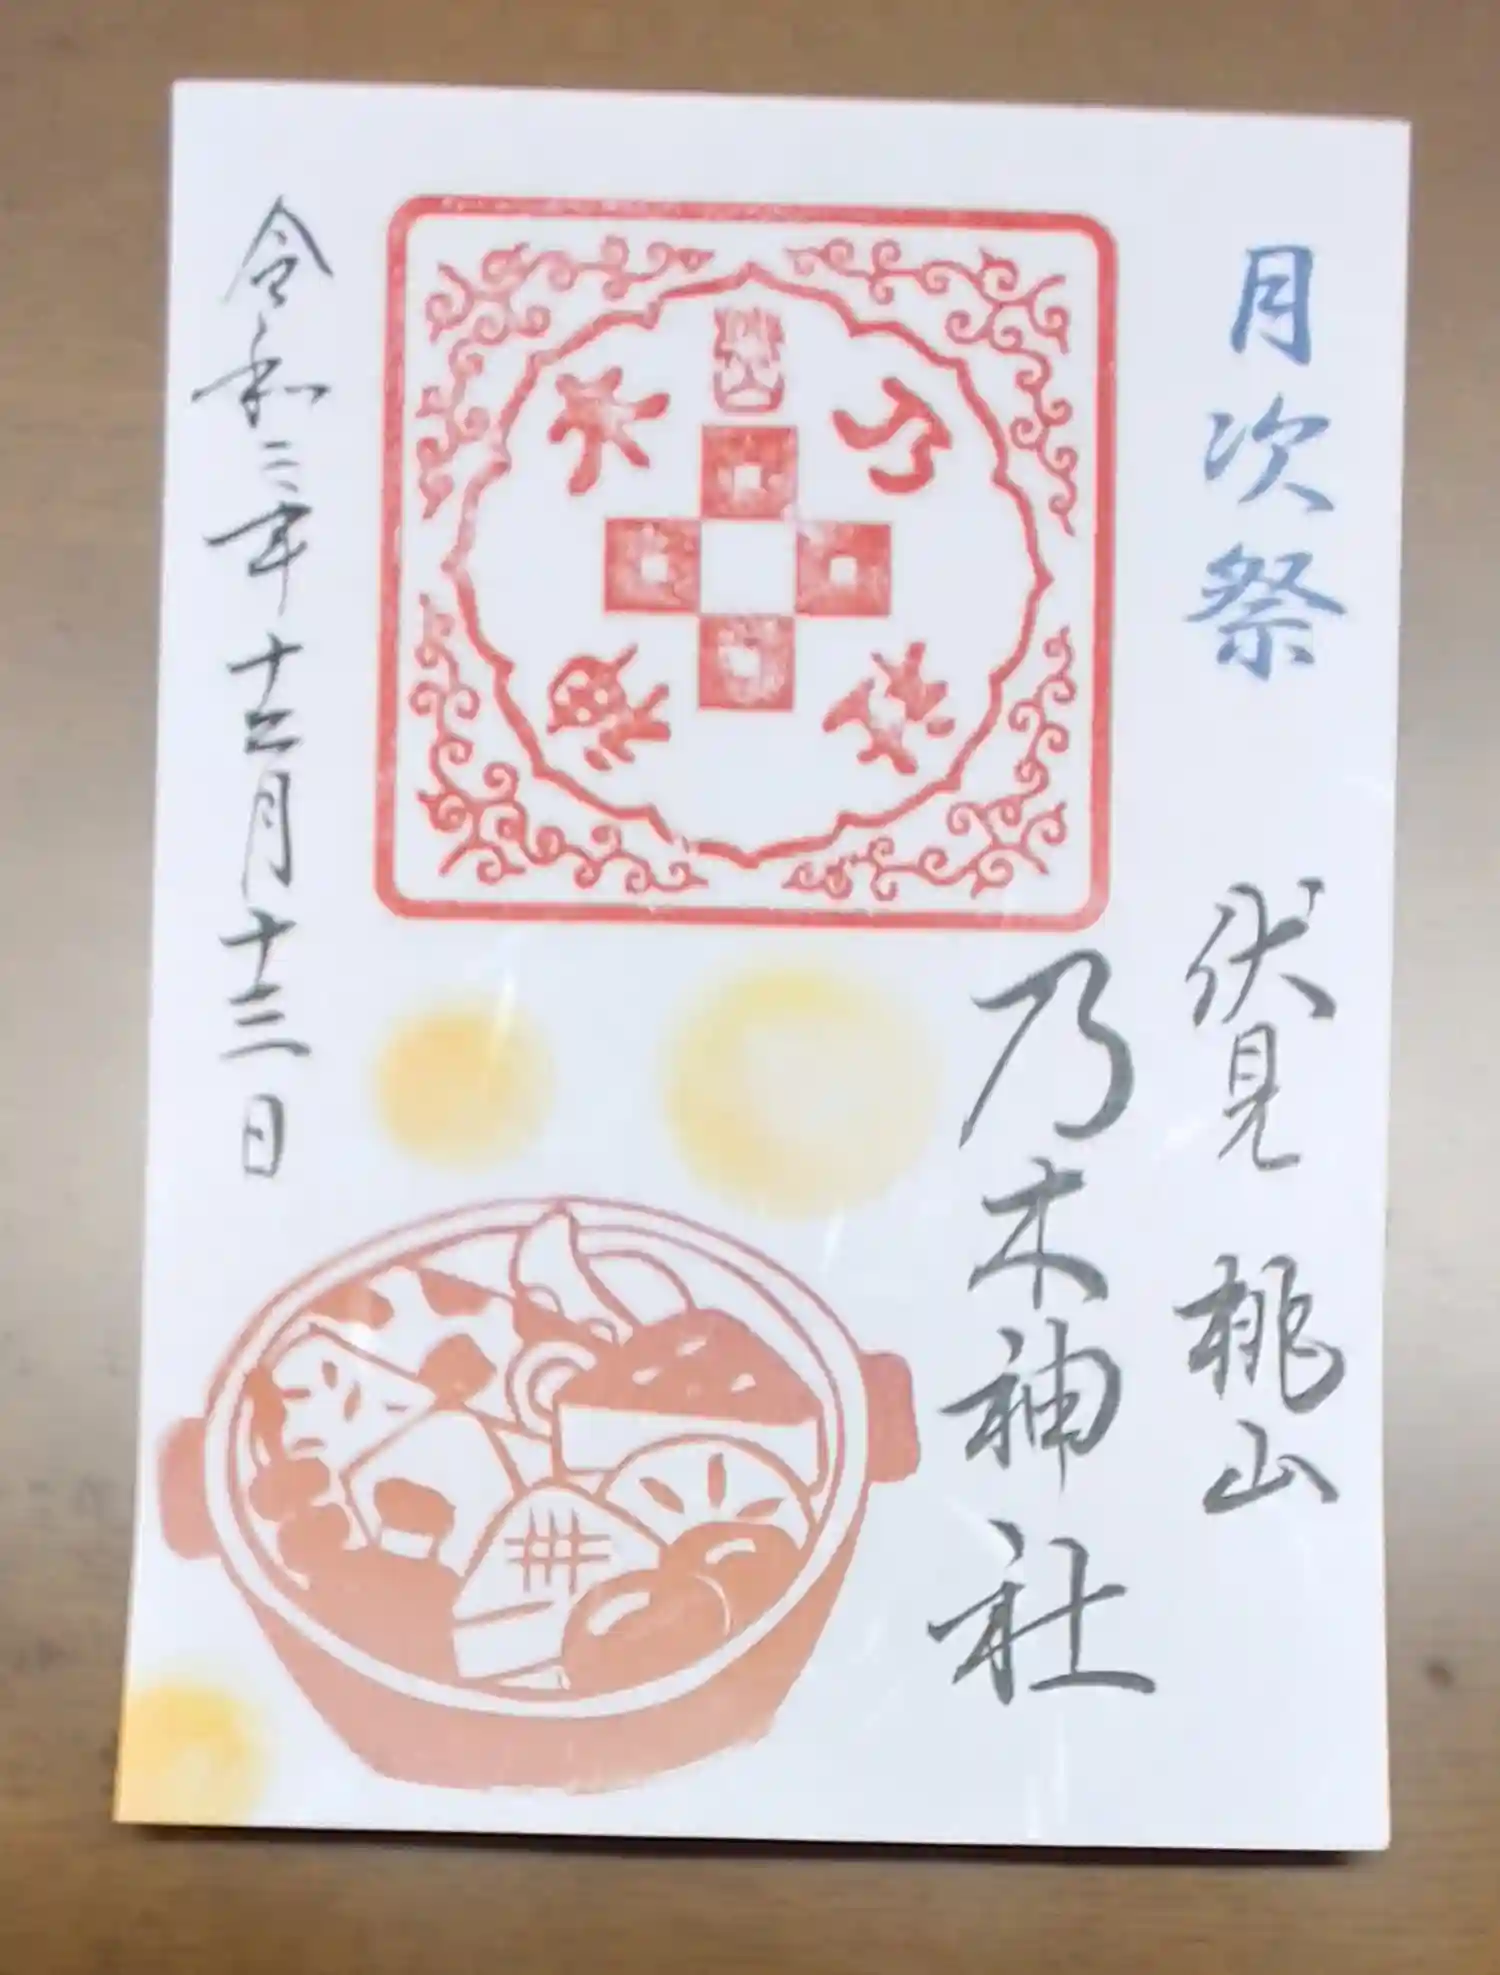 月次祭 伏見 桃山
乃木神社
令和二年十二月十三日